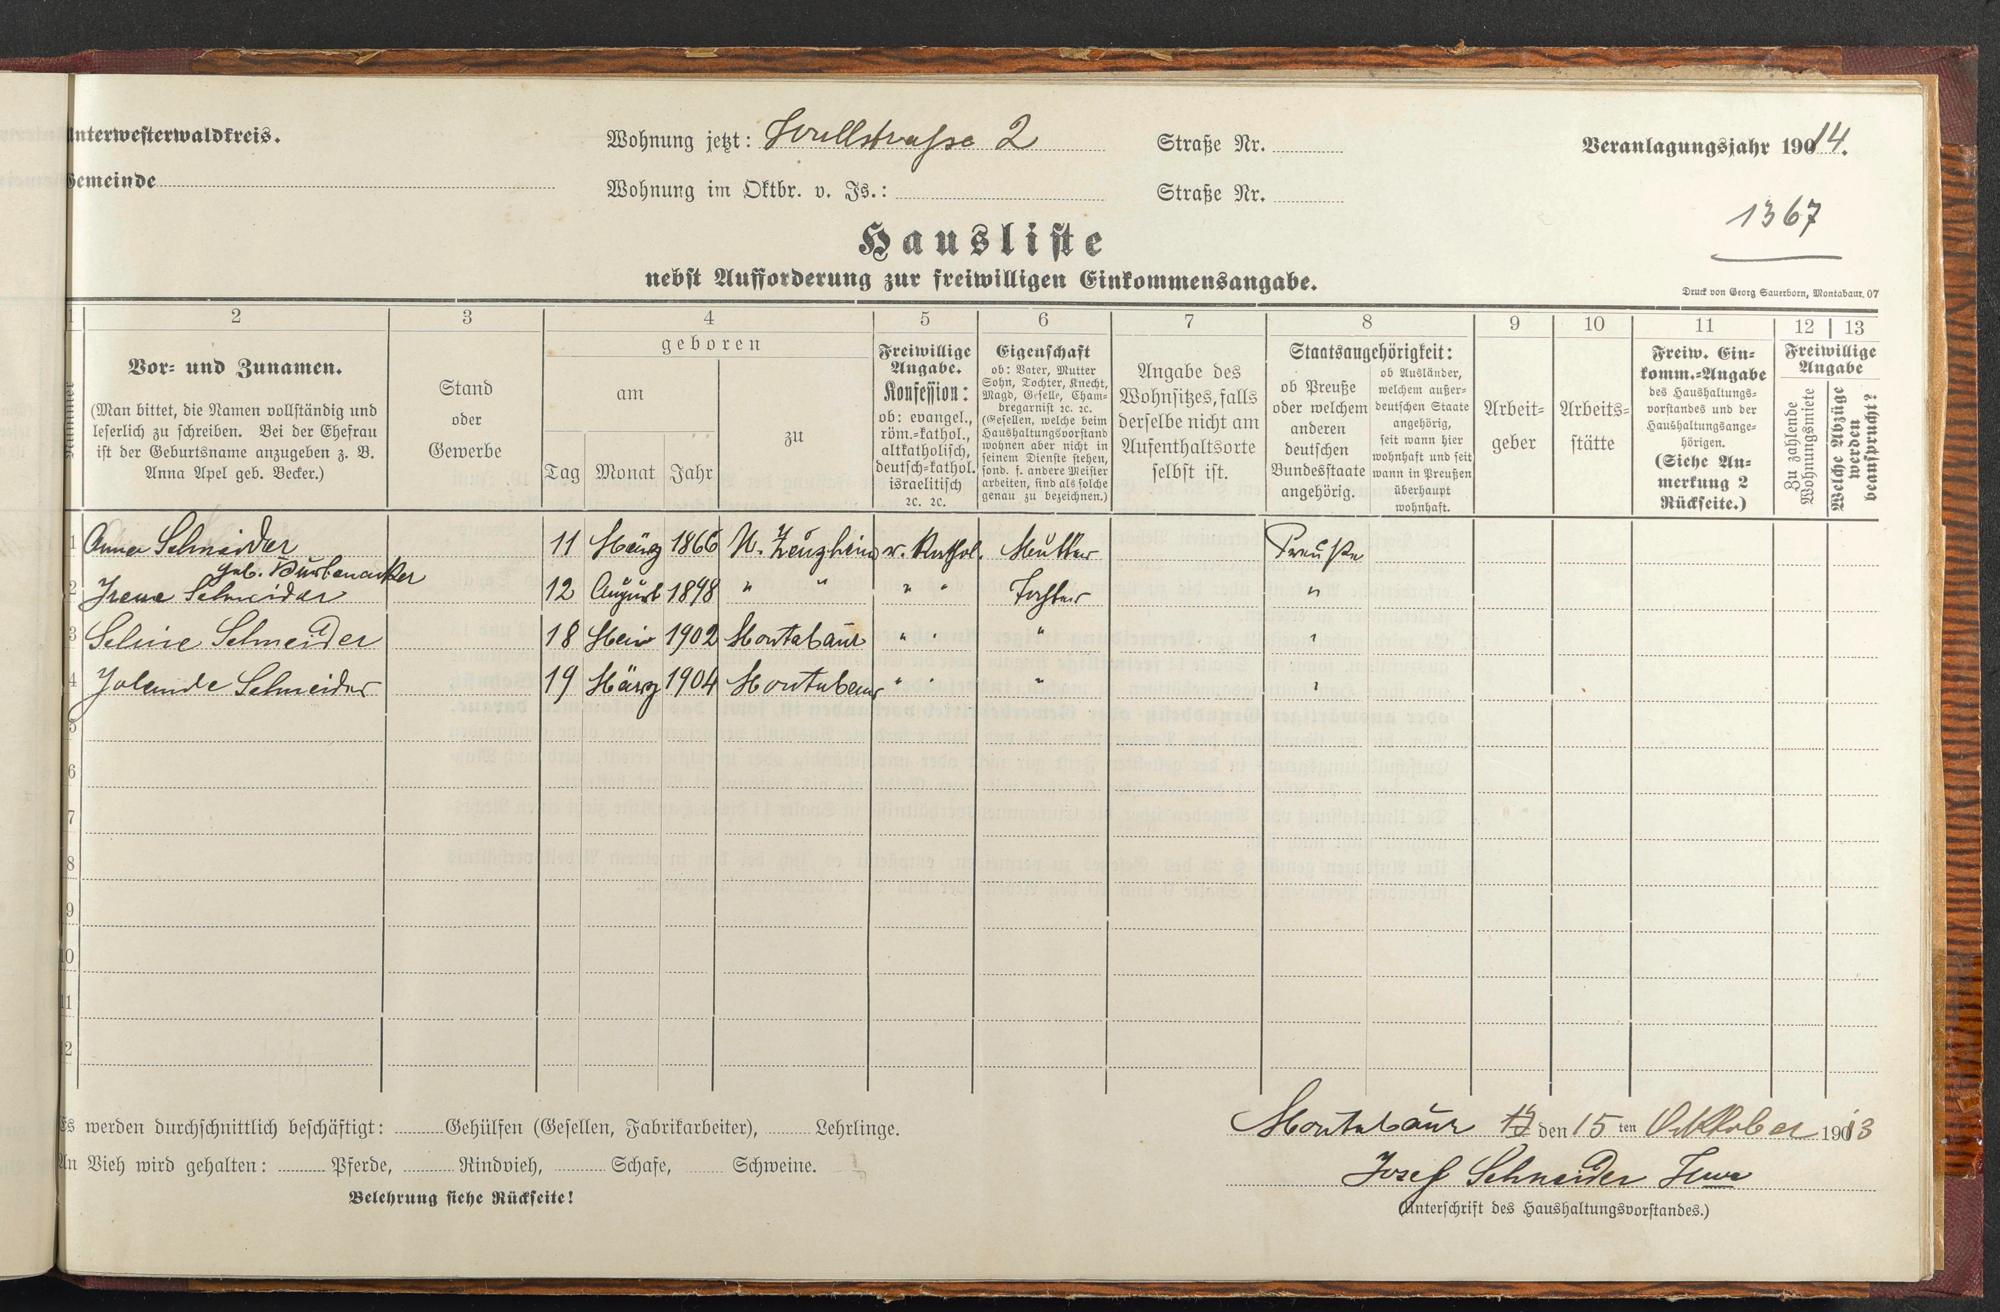 Unterwesterwaldkreis.
Wohnung jetzt: Wallstrasse 2 Straße Nr.
Veranlagungsjahr 1914.
Gemeinde
Wohnung im Oktbr. v. Js.: Straße Nr.
1367
Hausliste
nebst Aufforderung zur freiwilligen Einkommensangabe.
Druck von Georg Sauerborn, Montabaur. 07
1 2 3 4 5 6 7 8 9 10 11 12 13
Nummer
Vor- und Zunamen.
(Man bittet, die Namen vollständig und
leserlich zu schreiben. Bei der Ehefrau
ist der Geburtsname anzugeben z. B.
Anna Apel geb. Becker.)
Stand
oder
Gewerbe
geboren
am
zu
Tag Monat Jahr
Freiwillige
Angabe.
Konfession:
ob: evangel.,
röm.-kathol.,
altkatholisch,
deutsch-kathol.
israelitisch
ꝛc. ꝛc.
Eigenschaft
ob: Vater, Mutter
Sohn, Tochter, Knecht,
Magd, Geselle, Cham-
bregarnist ꝛc. ꝛc.
(Gesellen, welche beim
Haushaltungsvorstand
wohnen aber nicht in
seinem Dienste stehen,
sond. f. andere Meister
arbeiten, sind als solche
genau zu bezeichnen.)
Angabe des
Wohnsitzes, falls
derselbe nicht am
Aufenthaltsorte
selbst ist.
Staatsangehörigkeit:
ob Preuße
oder welchem
anderen
deutschen
Bundesstaate
angehörig.
ob Ausländer,
welchem außer-
deutschen Staate
angehörig,
seit wann hier
wohnhaft und seit
wann in Preußen
überhaupt
wohnhaft.
Arbeit-
geber
Arbeits-
stätte
Freiw. Ein-
komm.-Angabe
des Haushaltungs-
vorstandes und der
Haushaltungsange-
hörigen.
(Siehe An-
merkung 2
Rückseite.)
Freiwillige
Angabe
Zu zahlende
Wohnungsmiete
Welche Abzüge
werden
beansprucht?
1 Anna Schneider 11 März 1866 N. Zeuzheim r. Kathol. Mutter Preuße
geb.
2 Irene Schneider 12 August 1898 " " " " Tochter "
3 Seline Schneider 18 Mai 1902 Montabaur " " " "
4 Jolande Schneider 19 März 1904 Montabaur " " " "
5
6
7
8
9
10
11
12
Es werden durchschnittlich beschäftigt: Gehülfen (Gesellen, Fabrikarbeiter), Lehrlinge.
Montabaur den 15 ten Oktober 1913
An Vieh wird gehalten: Pferde, Rindvieh, Schafe, Schweine.
Josef Schneider Wwe
Belehrung siehe Rückseite!
(Unterschrift des Haushaltungsvorstandes.)